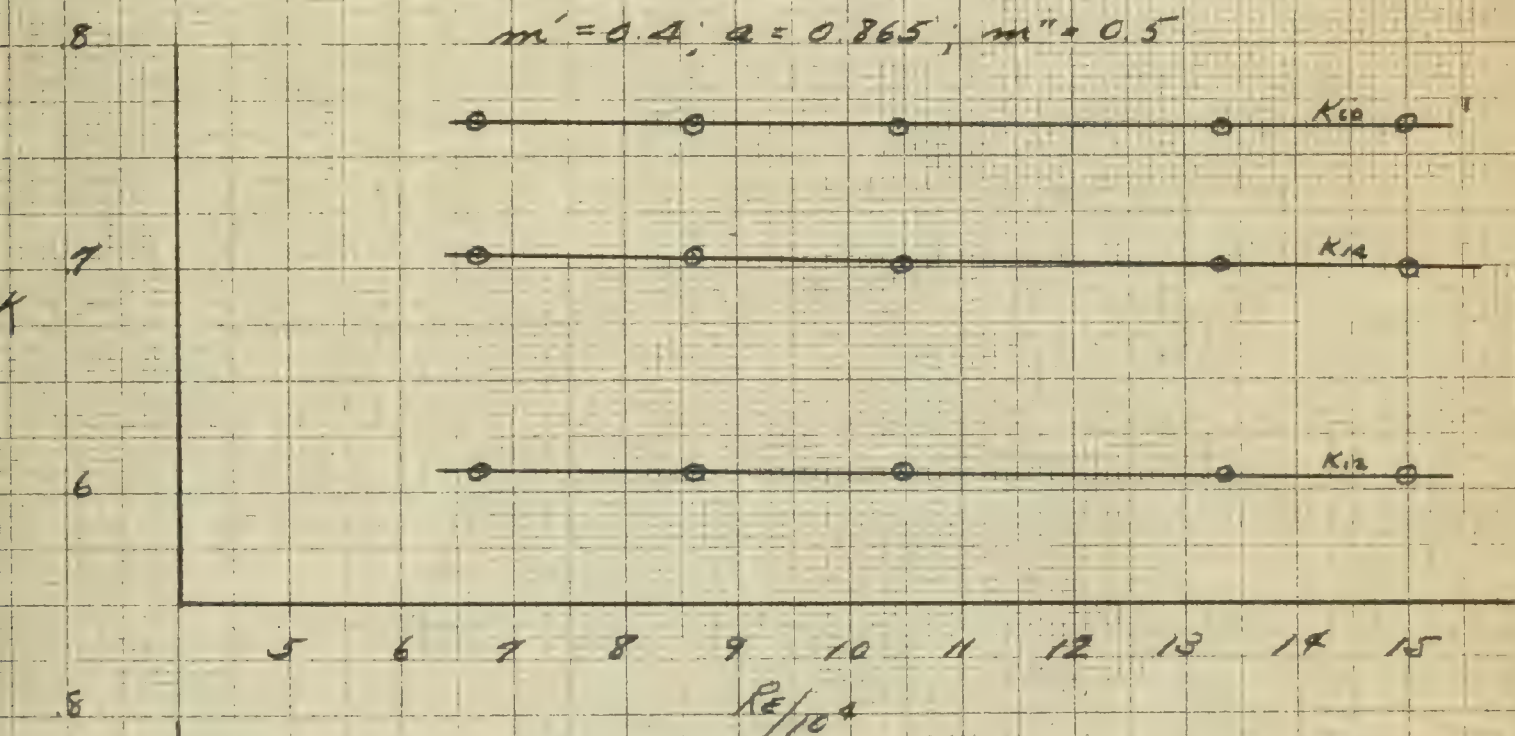 m' = 0.4; a = 0.865; m" = 0.5
.8
K10
.7
K14
K
.6
K12
5 6 7 8 9 10 11 12 13 14 15
RE/10⁴
.8